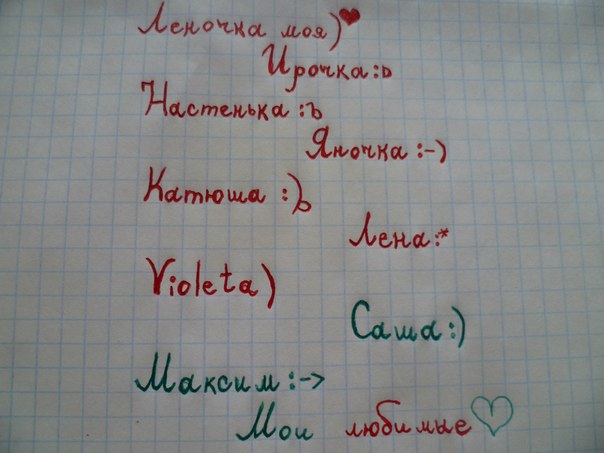 Леночка моя)♥
Ирочка:ь
Настенька:ъ
Яночка:-)
Катюша:)ь
Лена:*
Violeta)
Саша:)
Максим:->
Мои любимые♡